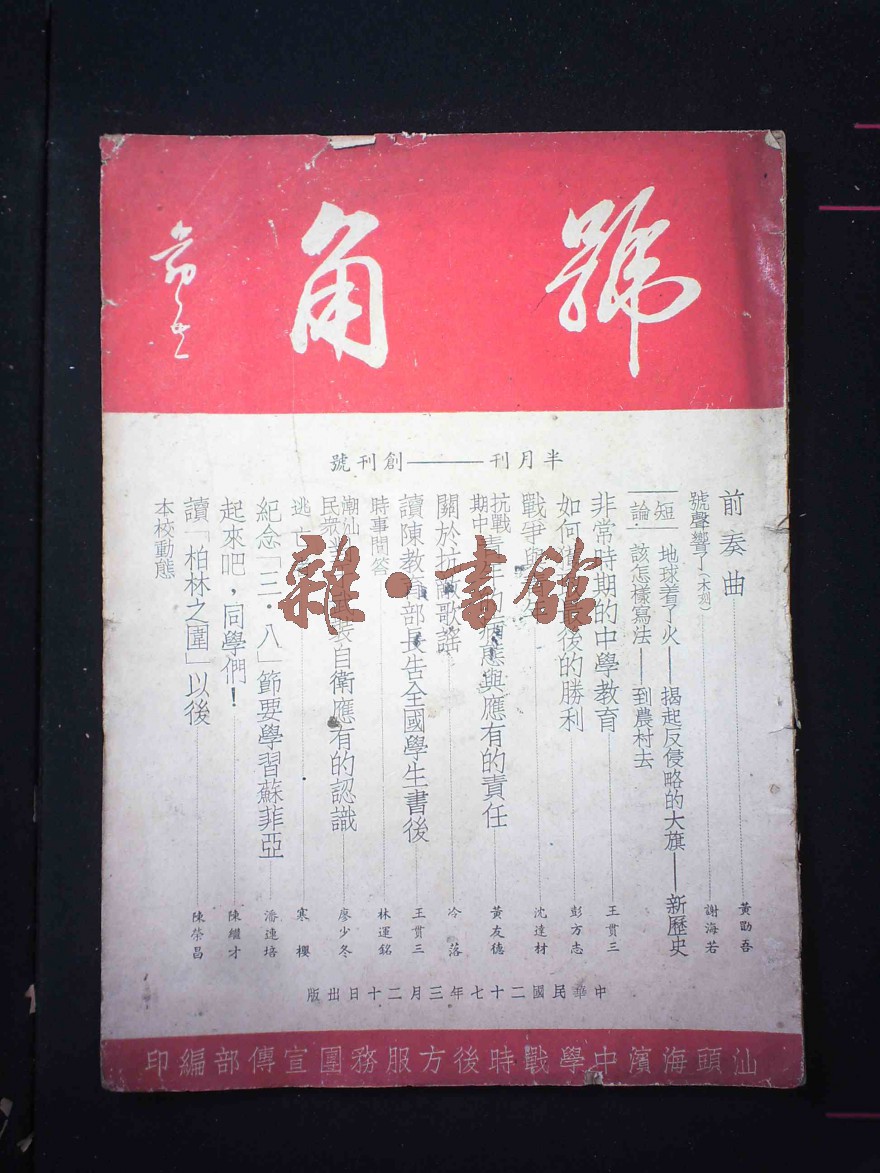 號角
半月刊——創刊號
前奏曲 黃勖吾
號聲響了(木刻) 謝海若
短論 地球着了火——揭起反侵略的大旗——新歷史
該怎樣寫法——到農村去
非常時期的中學教育 王貫三
如何 後的勝利 彭方志
戰爭與 沈達材
抗戰期中青 病態與應有的責任 黃友德
關於抗 歌謠 冷落
讀陳教育部長告全國學生書後 王貫三
時事問答 林運銘
潮汕民衆 裝自衛應有的認識 廖少冬
逃 寒櫻
紀念「三·八」節要學習蘇菲亞 潘連培
起來吧，同學們！ 陳繼才
讀「柏林之圍」以後 陳榮昌
本校動態
中華民國二十七年三月二十日出版
汕頭海濱中學戰時後方服務團宣傳部編印
雜·書館